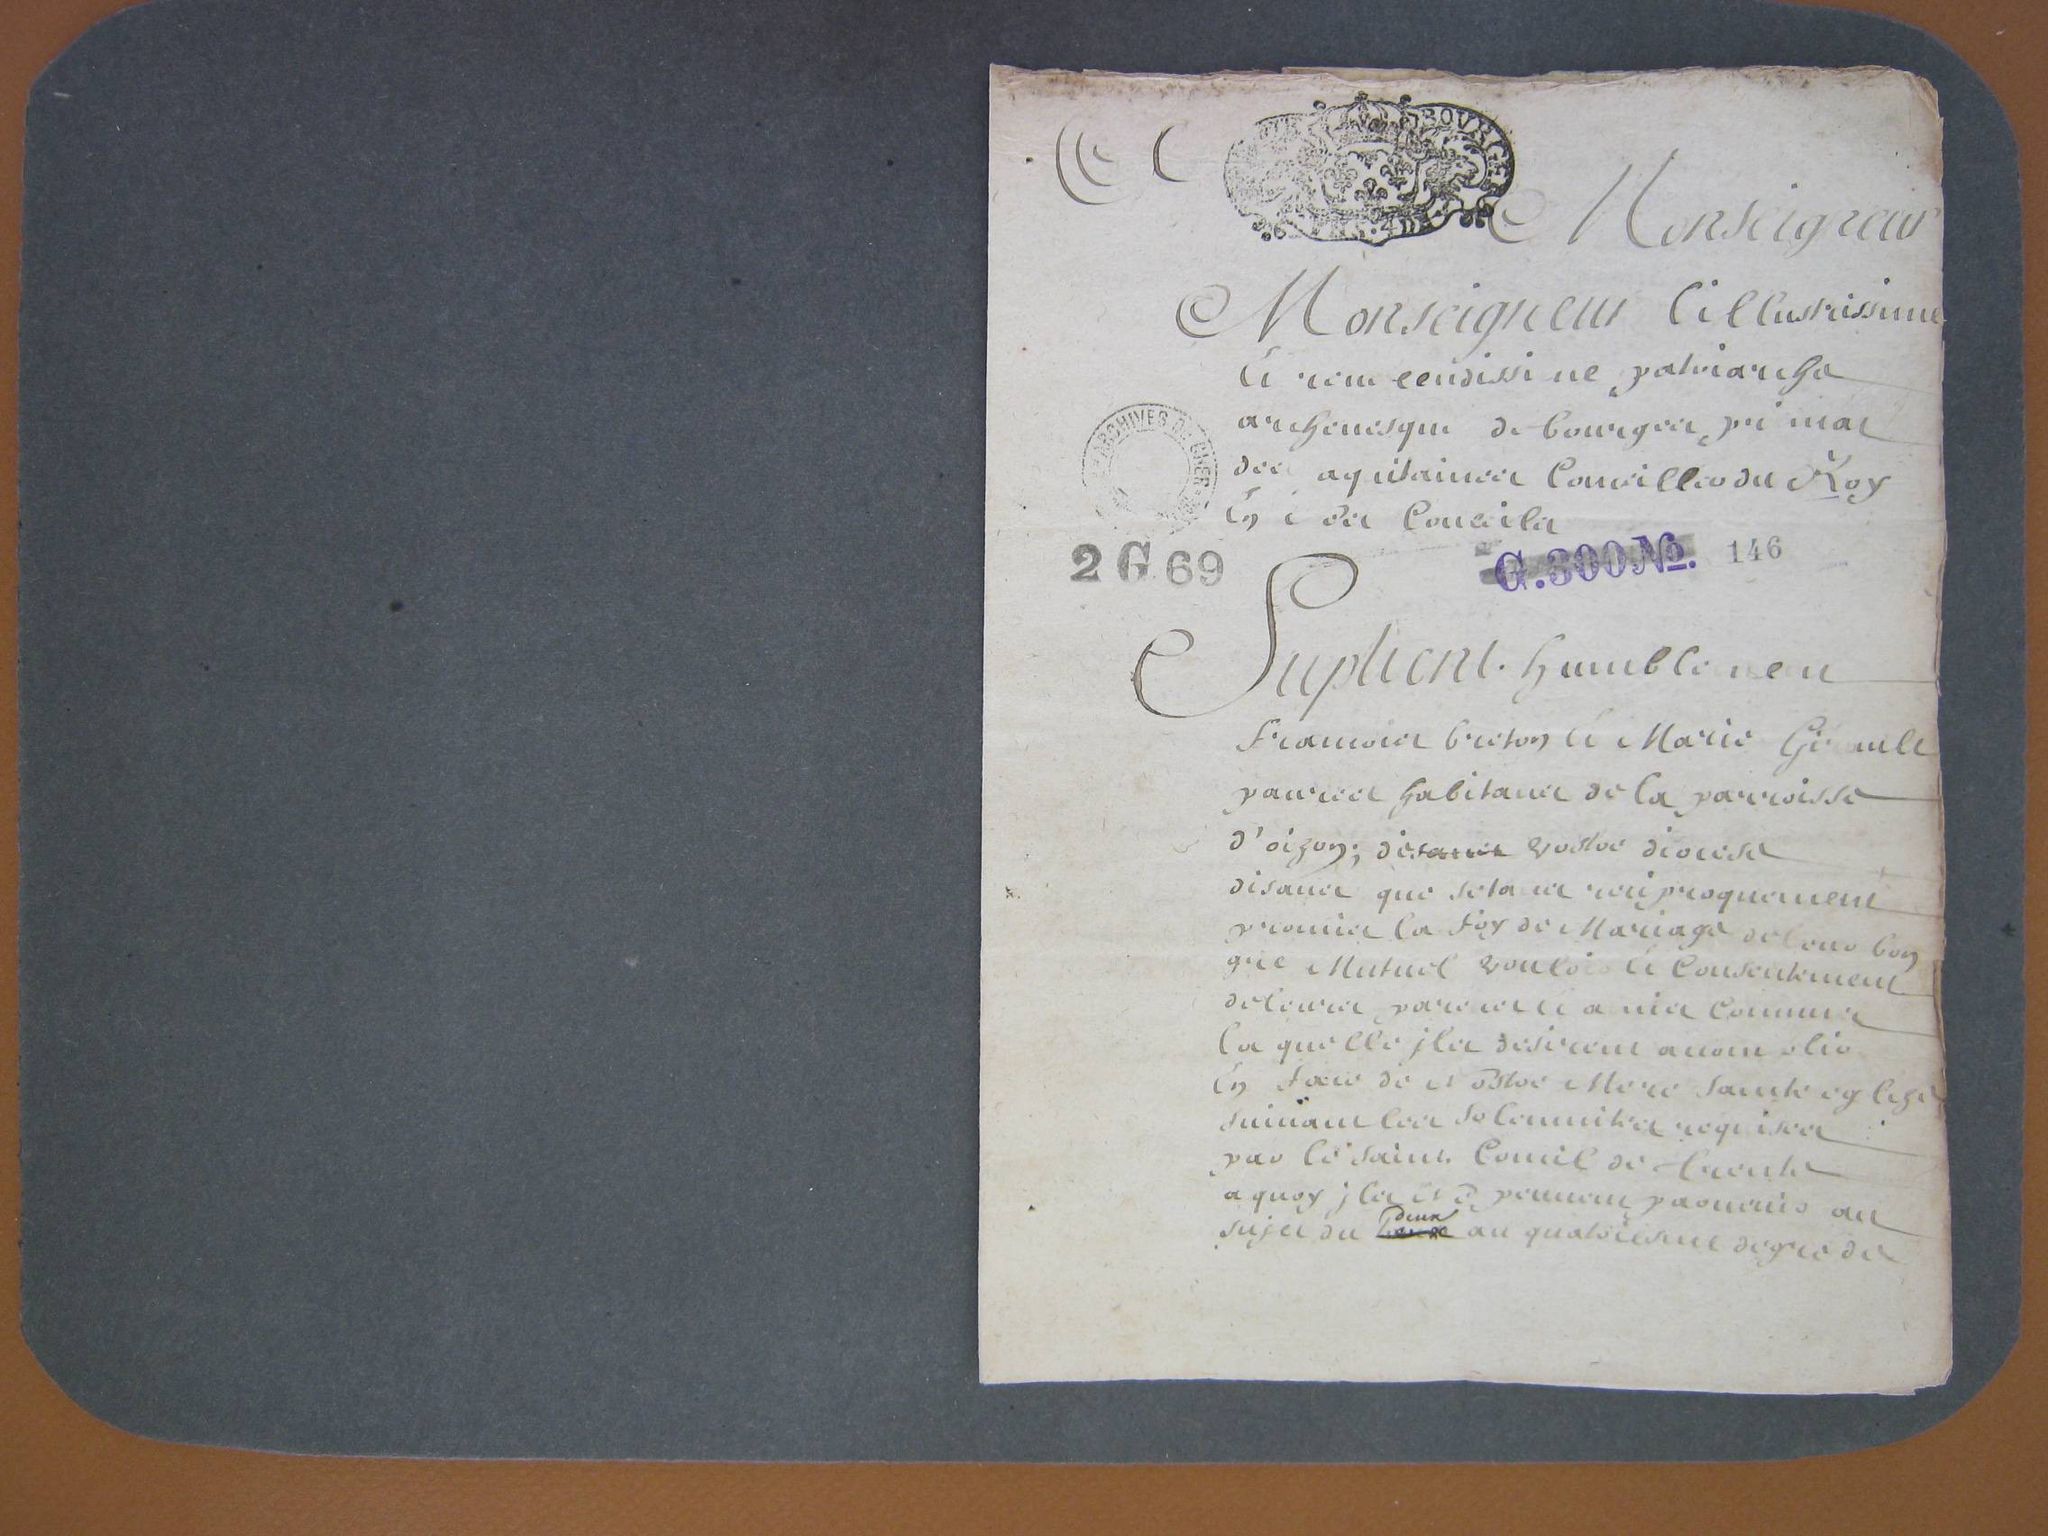 BOVRGES
Monseigneur
Monseigneur l'illustrissime
Et reuerendissime patriarche
archeuesque de bourges, primat
des aquitaines Conseiller du Roy
En ses Conseils
ARCHIVES DU CHER
2 G 69
G.300 No. 146
Suplient humblement
Francois breton Et Marie
pauures habitans de la parroisse
d'oizon, de vostre diocese
disant que setant reciproquement
promis la foy de Mariage de leur bon
gre Mutuel vouloir Et Consentement
de leurs parens Et amis Communs
la quelle jls desirent acomplir
En face de nostre Mere sainte eglize
suiuant les solemnites requises
par le saint Concil de trente
a quoy jls ne peuuent paruenir au
sujet du deux au quatriesme degré de